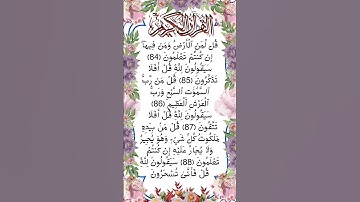 القرآن الكريم
قُل لِّمَنِ ٱلۡأَرۡضُ وَمَن فِيهَآ
إِن كُنتُمۡ تَعۡلَمُونَ (84)
سَيَقُولُونَ لِلَّهِۚ قُلۡ أَفَلَا
تَذَكَّرُونَ (85) قُلۡ مَن رَّبُّ
ٱلسَّمَٰوَٰتِ ٱلسَّبۡعِ وَرَبُّ
ٱلۡعَرۡشِ ٱلۡعَظِيمِ (86)
سَيَقُولُونَ لِلَّهِۚ قُلۡ أَفَلَا
تَتَّقُونَ (87) قُلۡ مَنۢ بِيَدِهِۦ
مَلَكُوتُ كُلِّ شَيۡءٖ وَهُوَ يُجِيرُ
وَلَا يُجَارُ عَلَيۡهِ إِن كُنتُمۡ
تَعۡلَمُونَ (88) سَيَقُولُونَ لِلَّهِۚ
قُلۡ فَأَنَّىٰ تُسۡحَرُونَ